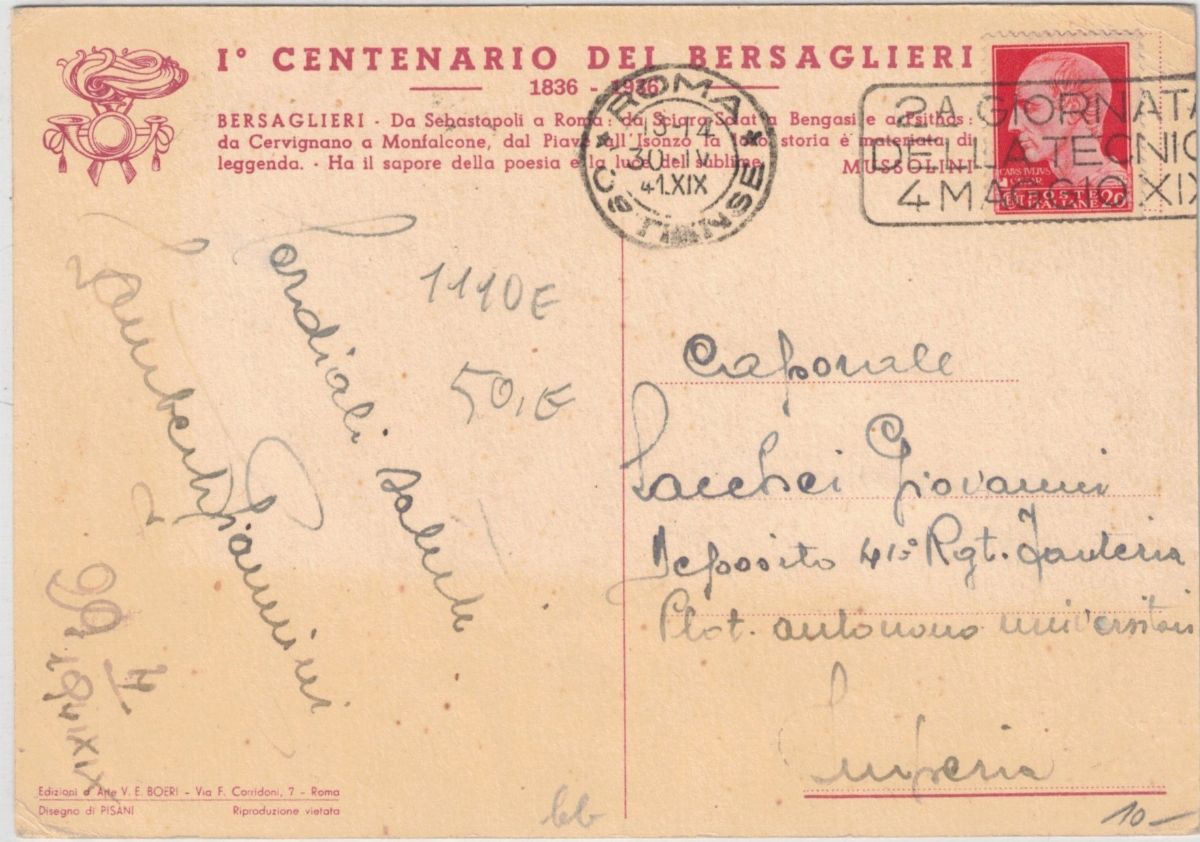 I° CENTENARIO DEI BERSAGLIERI
1836 - 1936
BERSAGLIERI - Da Sebastopoli a Roma: da Sciara Sciat a Bengasi e a Psithos:
da Cervignano a Monfalcone, dal Piave all'Isonzo la loro storia è materiata di
leggenda. - Ha il sapore della poesia e la luce del sublime. MUSSOLINI
ROMA
13-14
30 IV
41.XIX
OSTIENSE
2A GIORNATA
DELLA TECNIC
4 MAGGIO XIX
POSTE
ITALIANE 20
Cordiali saluti
Giannini
1110 E
50,E
Caporale
Sacchei Giovanni
Deposito 41° Rgt. Fanteria
Plot. autonomo universitari
Imperia
Edizioni d'Arte V. E. BOERI - Via F. Corridoni, 7 - Roma
Disegno di PISANI Riproduzione vietata
bb
10-